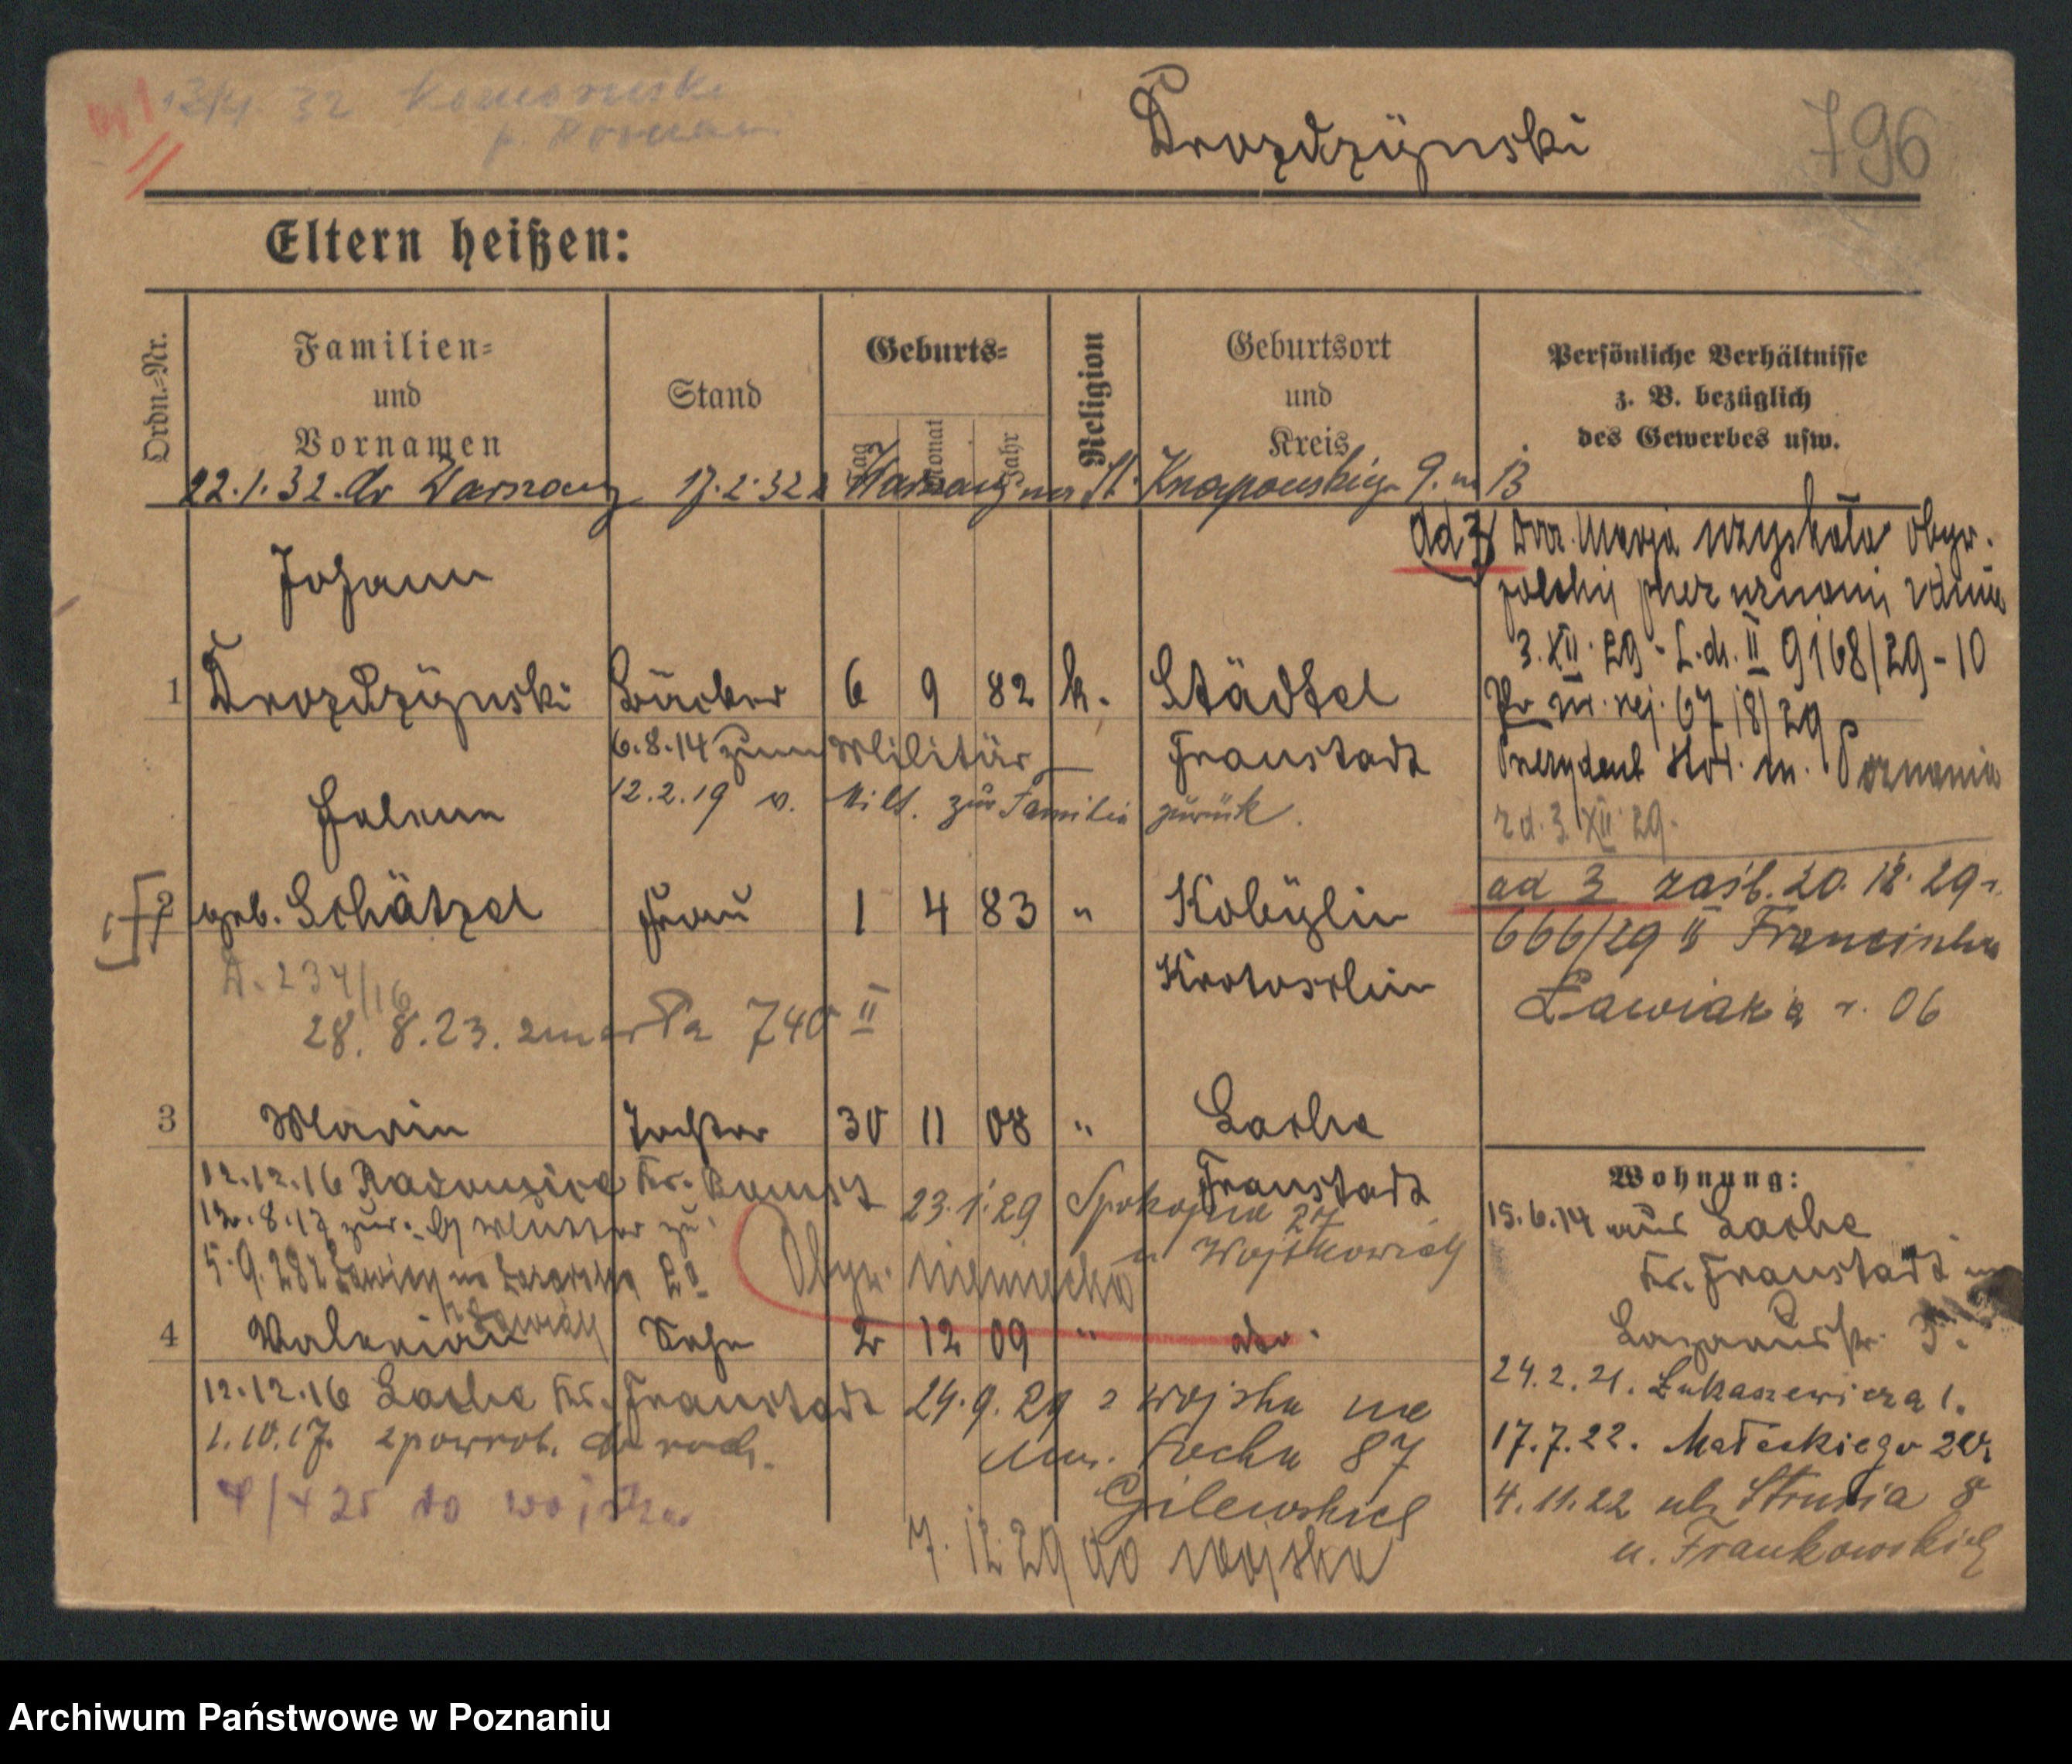 Drozdzÿnski
796
Eltern heißen:
Ordn.-Nr.
Familien-
und
Vornamen
Stand
Geburts-
Tag
Monat
Jahr
Religion
Geburtsort
und
Kreis
Persönliche Verhältnisse
z. B. bezüglich
des Gewerbes usw.
22.1.32. do Warszawy 17.2.32 z Warszawy na Knapowskiego 9. m 13
Johann
1 Drozdzÿnski Bäcker 6 9 82 k. Städtel
6.8.14 zum Militär
Fraustadt
12.2.19 v. Milt. zur Familie zurück.
Helene
2 geb. Schätzel Frau 1 4 83 " Kobÿlin
Krotoschin
A. 234/16
28.8.23. 740 II
3 Marie Tochter 30 11 08 " Lache
Fraustadt
12.12.16 Kr. Bomst
23.1.29 Spokojna 27
u Wojtkowiak
Obyw. niemiecka
4 Valerian Sohn 2 12 09 " dto.
12.12.16 Lache Kr. Fraustadt
1.10.17. z powrot. do rodz.
25 do wojska
24.9.29 z wojska na
Rocha 87
Gilewskich
7.12.29 do wojska
ad 3/ Marja uzyskała obyw.
polskie przez uznanie z dnia
3.XII.29 - L.dz. II 9168/29-10
nr. rej. 67/8/29
Prezydent st. m. Poznania
z d. 3.XII.29.
ad 3 zaśl. 20.12.29 r.
666/29 II Franciszka
Ławiaka r. 06
Wohnung:
15.6.14 aus Lache
Kr. Fraustadt
Lazarusstr.
24.2.21. Łukaszewicza 1.
17.7.22. Małeckiego
4.11.22 ul. Strusia 8
u. Frankowskich
Archiwum Państwowe w Poznaniu